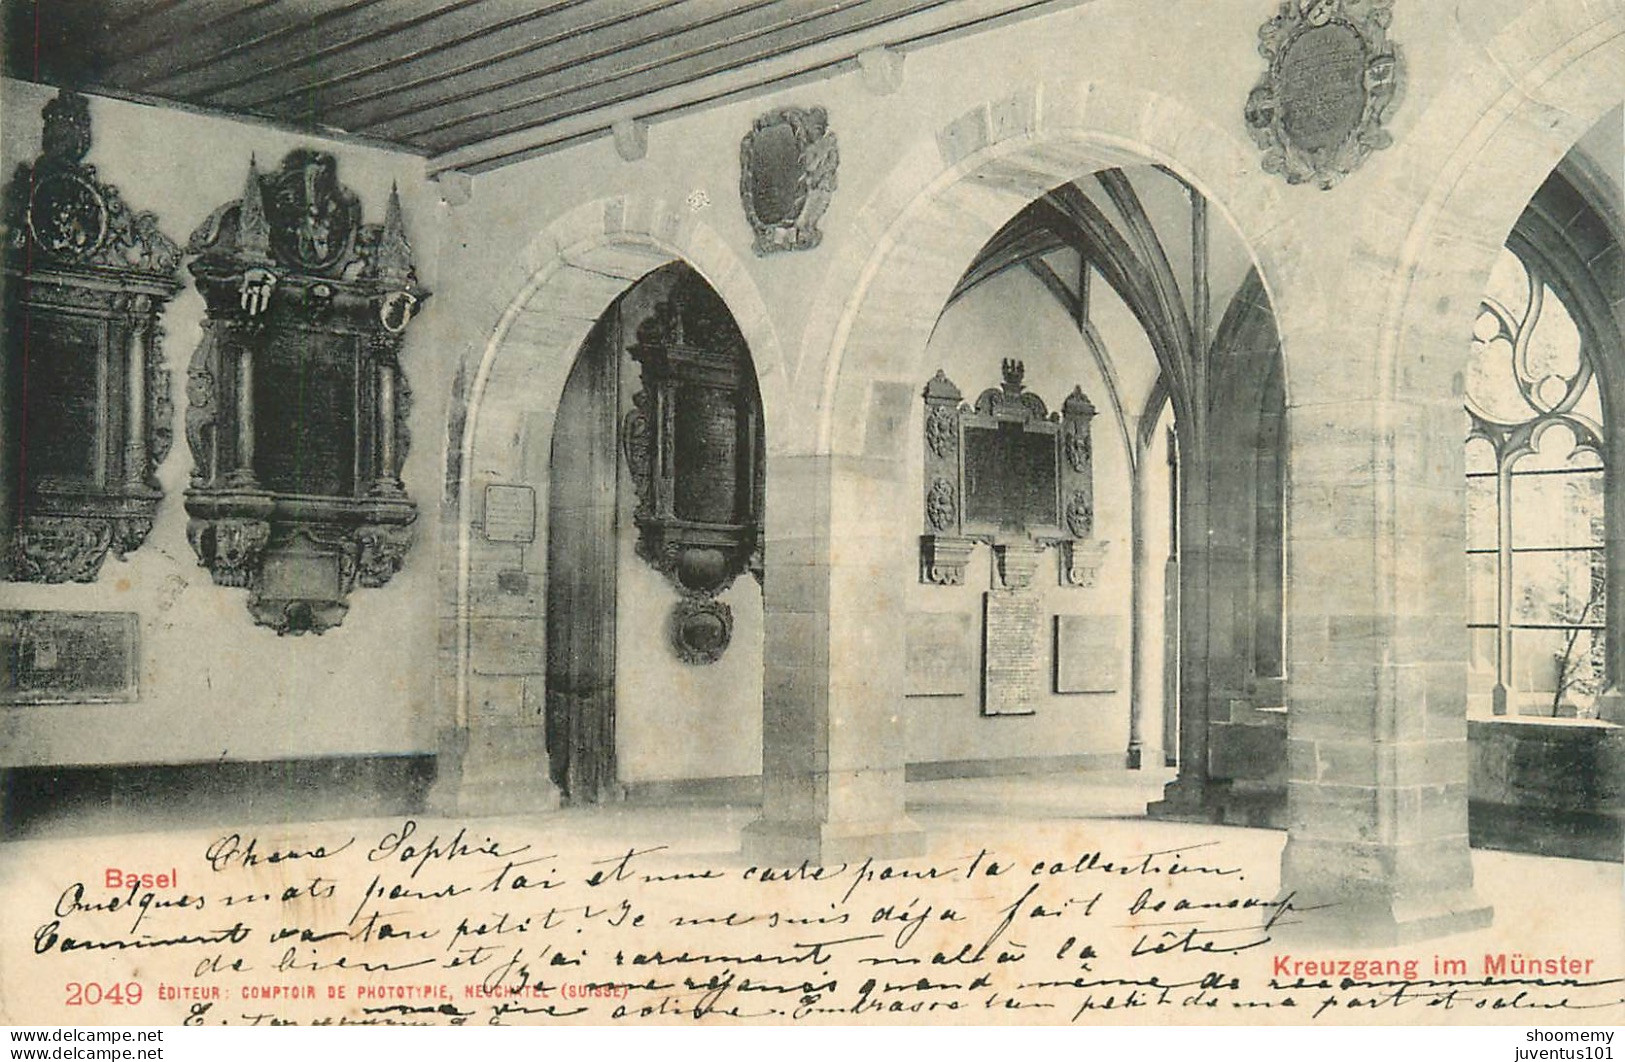 Chere Sophie
Basel
Quelques mots pour toi et une carte pour ta collection.
Comment va ton petit? Je me suis déja fait beaucoup
de bien et j'ai rarement mal à la tête.
Kreuzgang im Münster
Je me réjouis quand même de recommencer
2049 ÉDITEUR: COMPTOIR DE PHOTOTYPIE, NEUCHATEL (SUISSE)
une vie active. Embrasse ton petit de ma part et salue
Basel
shoomemy
juventus101